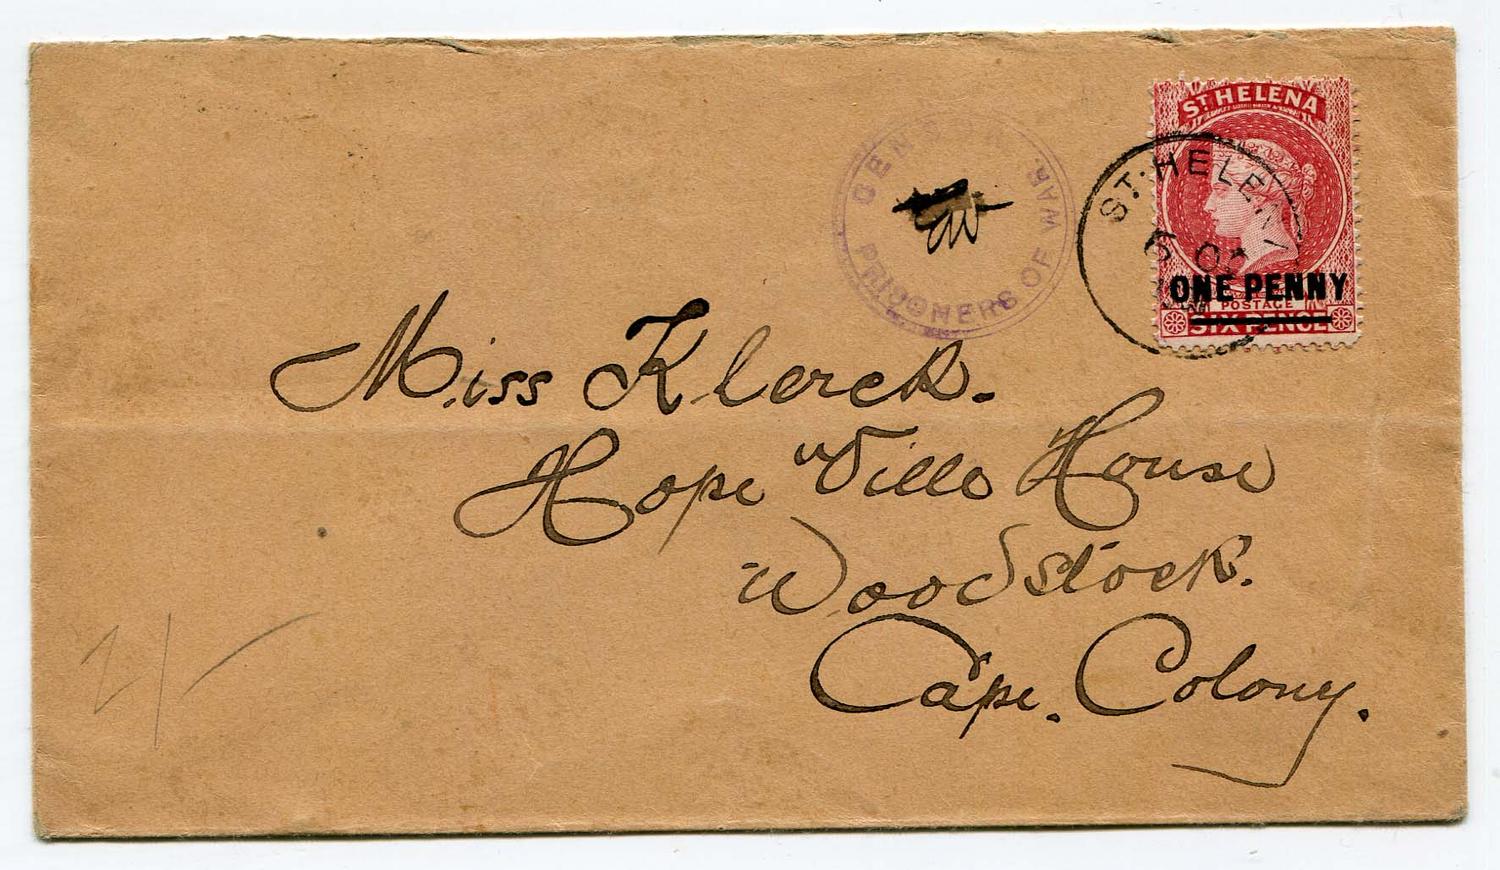 CENSOR
PRISONERS OF WAR.
ST HELENA
ST. HELENA
6 02
ONE PENNY
POSTAGE
SIX PENCE
Miss Klerck.
Hope Ville House
Woodstock.
Cape. Colony.